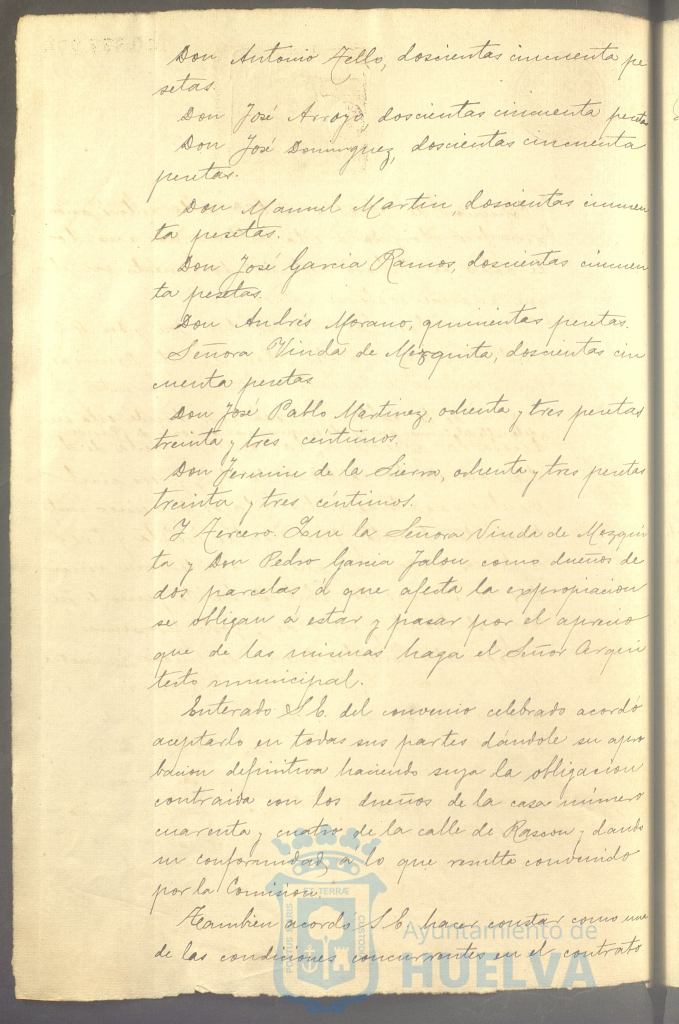 Don Antonio Tello, doscientas cincuenta pe
setas.
Don José Arroyo, doscientas cincuenta pesetas
Don José Dominguez, doscientas cincuenta
pesetas.
Don Manuel Martin, doscientas cincuen
ta pesetas.
Don José Garcia Ramos, doscientas cincuen
ta pesetas.
Don Andrés Morano, quinientas pesetas.
Señora Viuda de Mezquita, doscientas cin
cuenta pesetas
Don José Pablo Martinez, ochenta y tres pesetas
treinta y tres céntimos.
Don Fermin de la Sierra, ochenta y tres pesetas
treinta y tres céntimos.
Y Tercero. Que la Señora Viuda de Mezqui
ta y Don Pedro Garcia Jalon como dueños de
dos parcelas á que afecta la expropiacion
se obligan á estar y pasar por el aprecio
que de las mismas haga el Señor Arqui
tecto municipal.
Enterado S. E. del convenio celebrado acordó
aceptarlo en todas sus partes dándole su apro
bacion definitiva haciendo suya la obligacion
contraida con los dueños de la casa número
cuarenta y cuatro de la calle de Rascon y dando
su conformidad a lo que resulta convenido
por la Comision.
Tambien acordó S. E. hacer constar como una
de las condiciones concurrentes en el contrato
Ayuntamiento de
HUELVA
PORTUS MARIS
ET TERRÆ
CUSTODIA